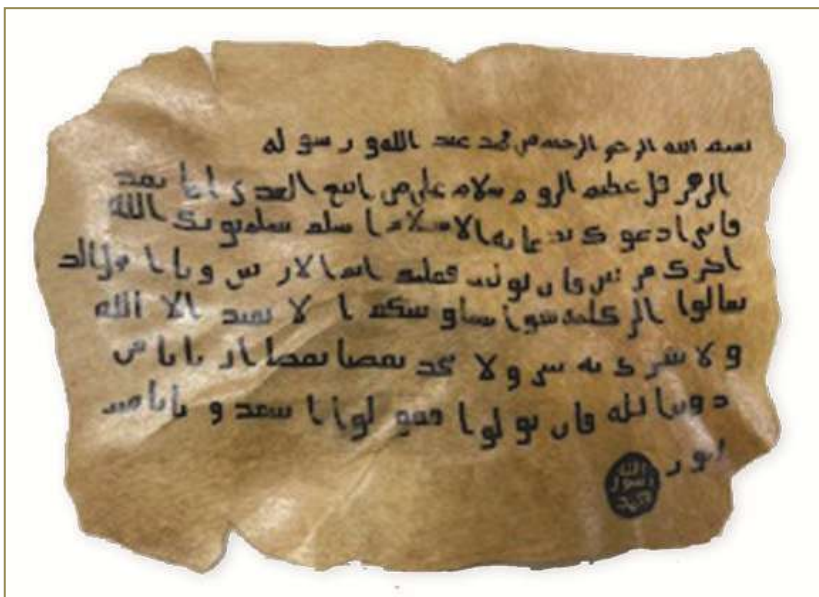 بسم الله الرحمن الرحيم من محمد عبد الله و رسوله
الى هرقل عظيم الروم سلام على من اتبع الهدى اما بعد
فانى ادعوك بدعاية الاسلام اسلم تسلم يوتك الله
اجرك مرتين فان توليت فعليك اثم الاريسين ويا اهل الكتاب
تعالوا الى كلمة سوا بيننا وبينكم ا لا نعبد الا الله
ولا نشرك به شى ولا يتخذ بعضنا بعضا اربابا من
دون الله فان تولوا فقولوا اشهدوا بانا مسلـ
مون
الله
رسول
محمد